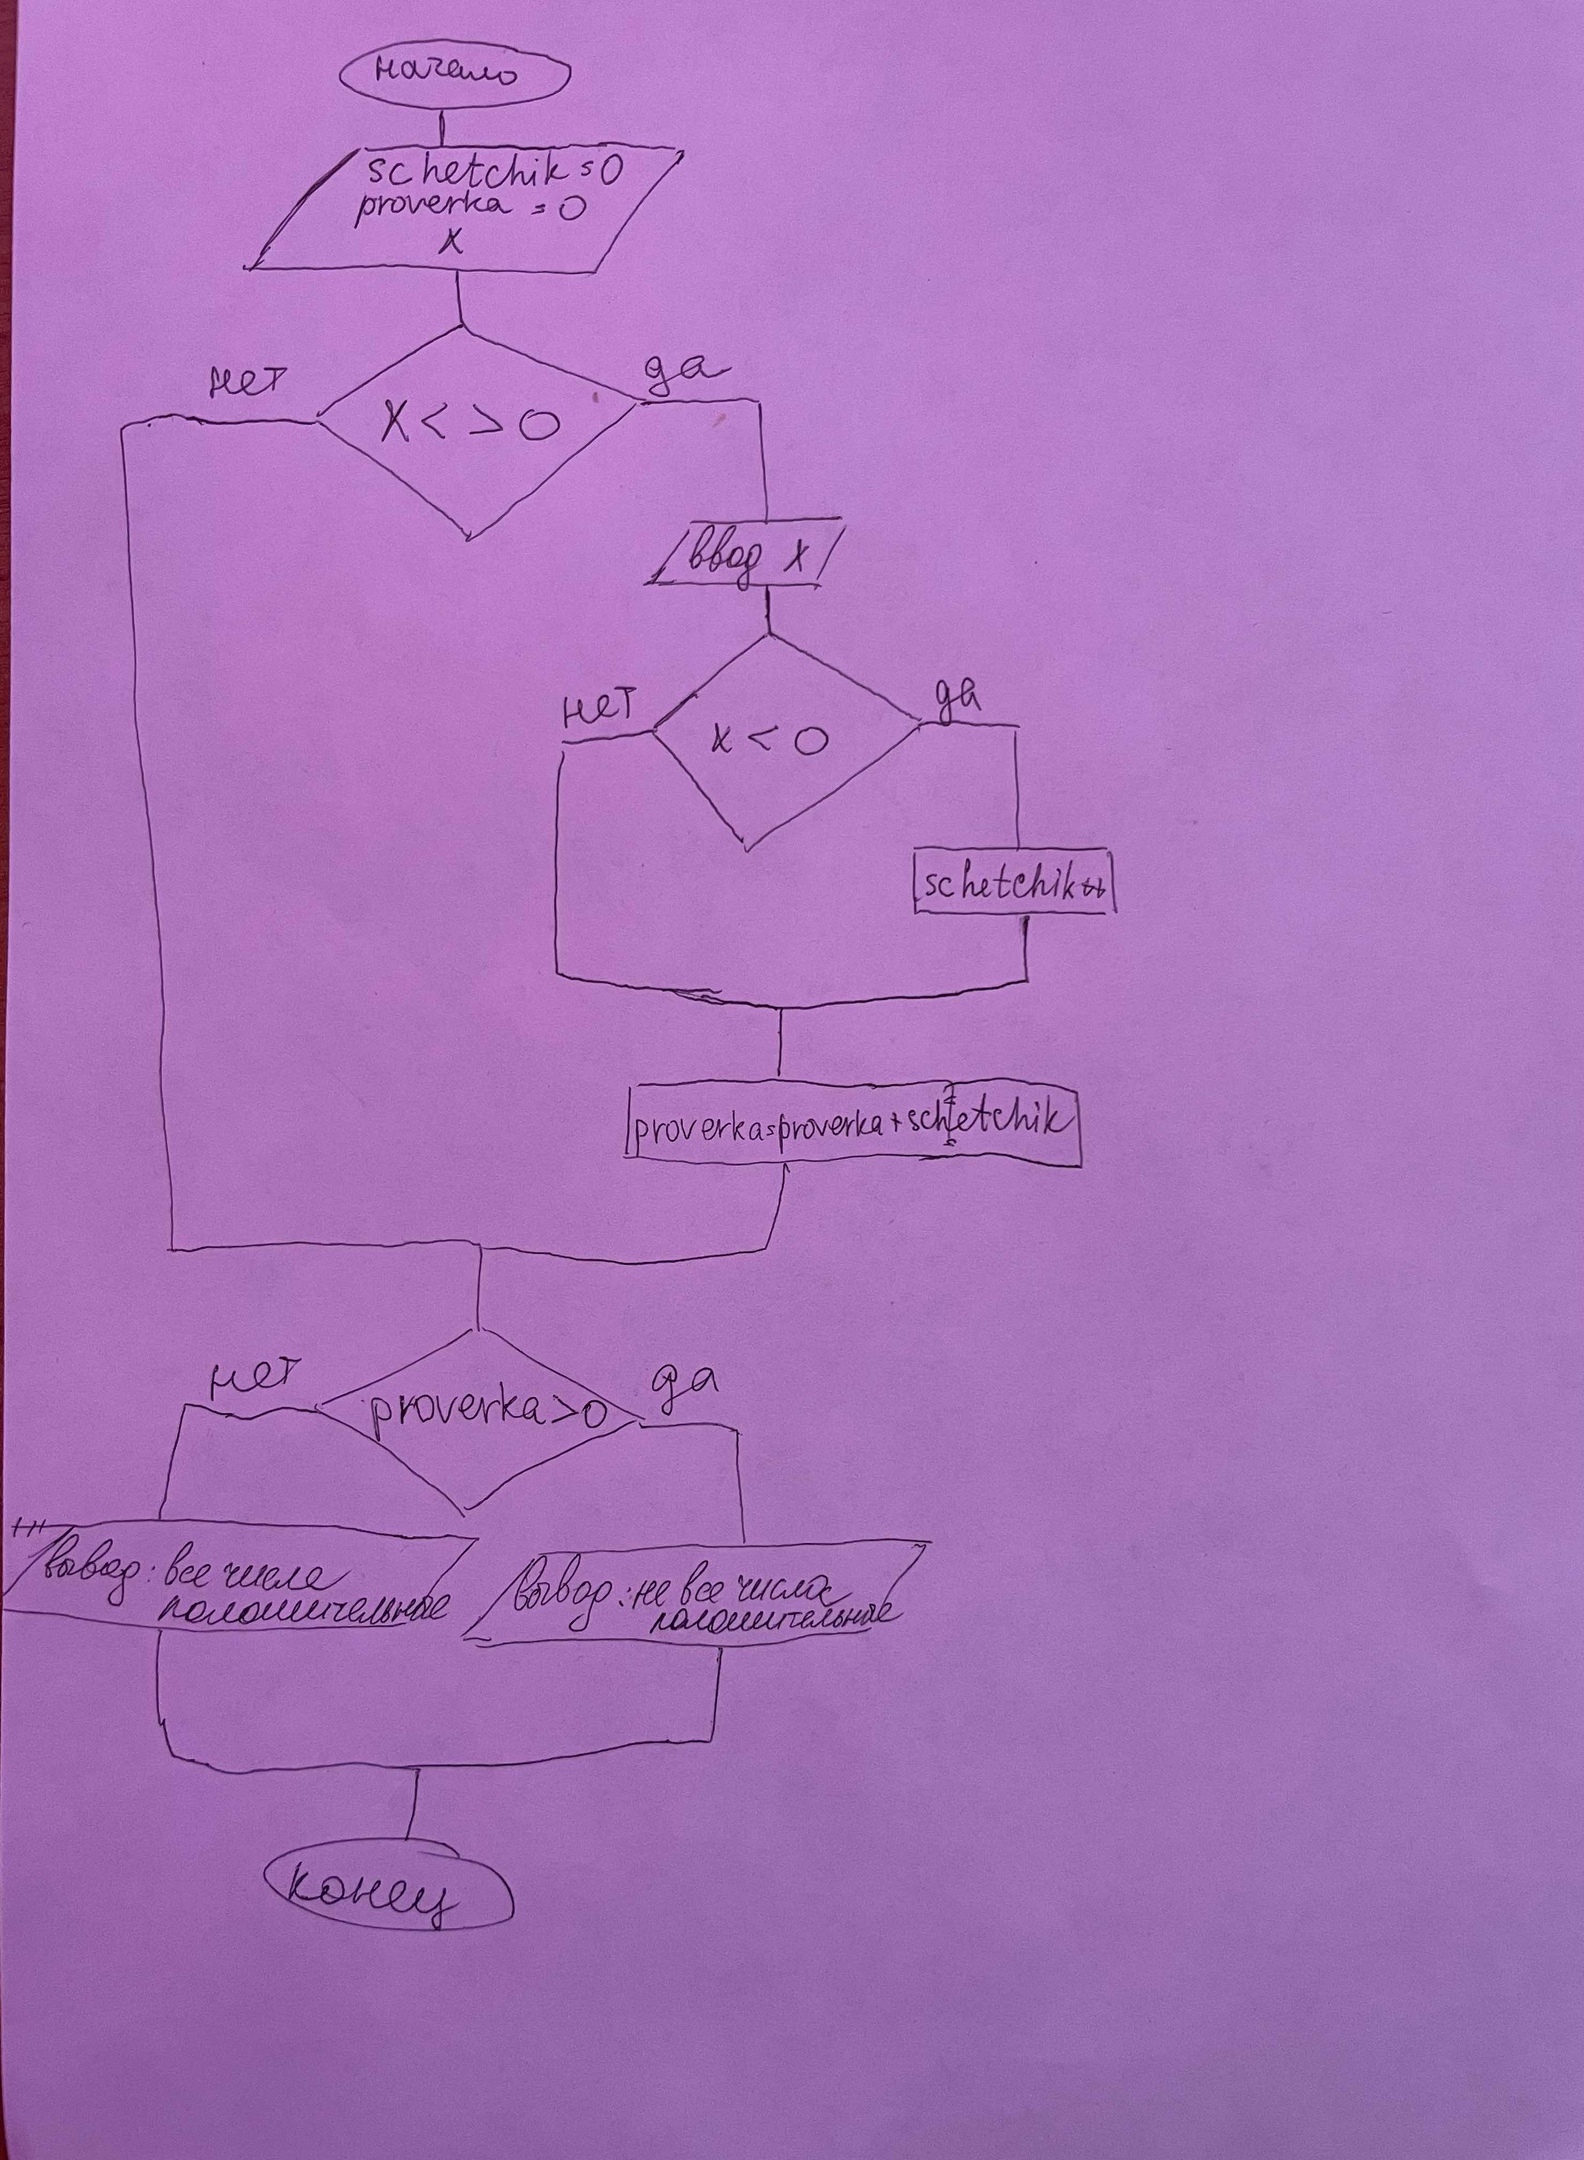 начало
schetchik=0
proverka =0
x
нет
да
x<>0
ввод x
нет
да
x<0
schetchik++
proverka=proverka+schetchik
нет
да
proverka>0
вывод: все числа
положительные
вывод: не все числа
положительные
конец